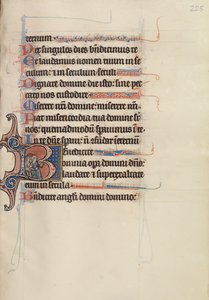 225
ternum
Per singulos dies bn̄dicimus te
Et laudamus nomen tuum in se
culum: ⁊ in seculum seculi
Dignare domine die isto: sine pec
cato nos custodire
Miserere nr̄i domine: miserere nr̄i
Fiat misericordia tua domine super
nos: quemadmodum sperauimus in te
In te dn̄e speraui: nō confundar in eternū
Benedicite
omnia opera domini dn̄o:
laudate ⁊ superexaltate
eum in secula
Bn̄dicite angeli domini domino: